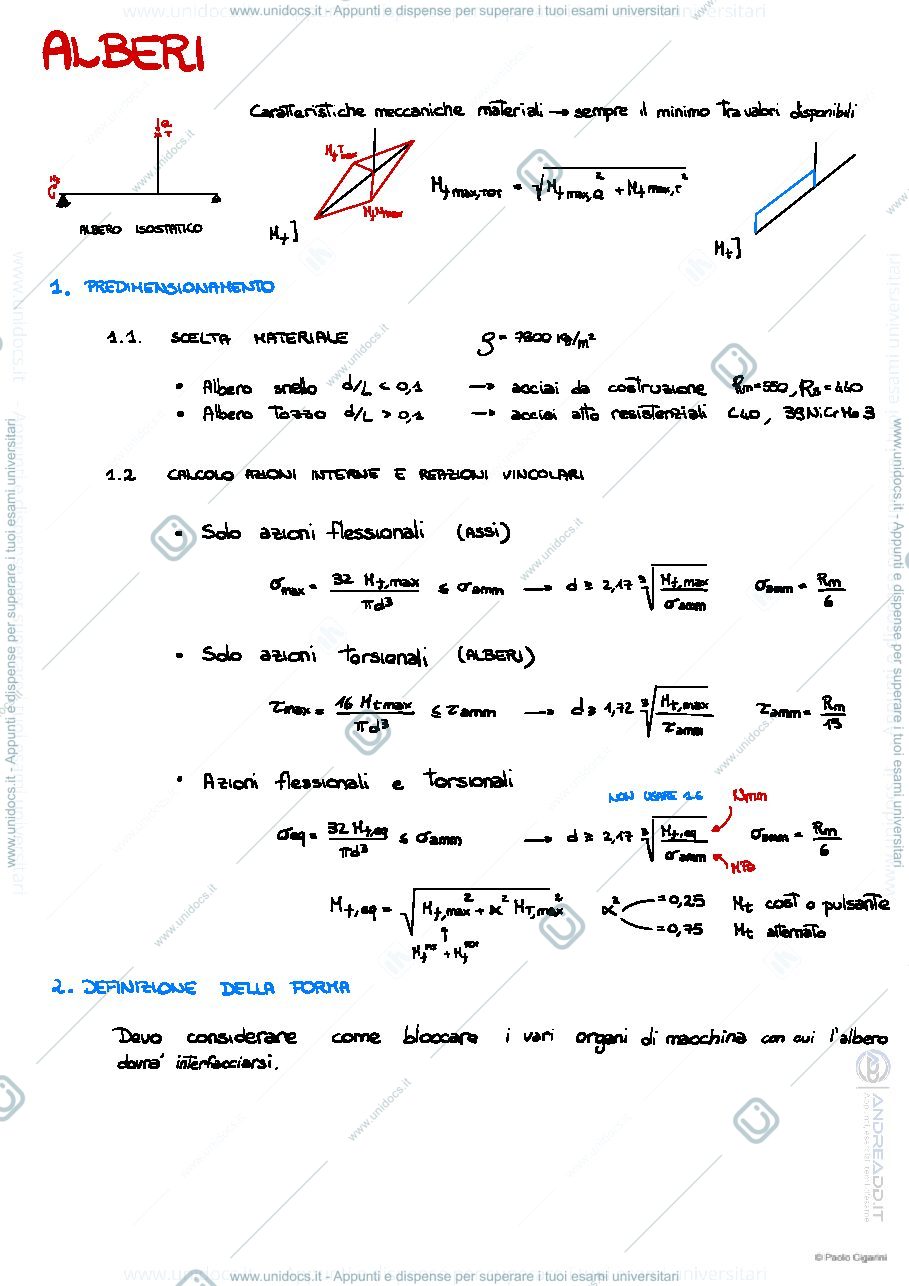 www.unidocs.it - Appunti e dispense per superare i tuoi esami universitari
ALBERI
Caratteristiche meccaniche materiali → sempre il minimo tra valori disponibili
Q
T
Mf T max
Mf max,TOT = √(Mf max,Q² + Mf max,T²)
ALBERO ISOSTATICO
Mf]
Mt]
1. PREDIMENSIONAMENTO
1.1. SCELTA MATERIALE ρ = 7800 kg/m²
• Albero snello d/L < 0,1 → acciai da costruzione Rm=550, Rs=440
• Albero tozzo d/L > 0,1 → acciai alto resistenziali C40, 39NiCrMo3
1.2 CALCOLO AZIONI INTERNE E REAZIONI VINCOLARI
• Solo azioni flessionali (ASSI)
σmax = 32 Mf,max / πd³ ≤ σamm → d ≥ 2,17 ³√(Mf,max / σamm) σamm = Rm/6
• Solo azioni torsionali (ALBERI)
τmax = 16 Mt max / πd³ ≤ τamm → d ≥ 1,72 ³√(Mt,max / τamm) τamm = Rm/15
• Azioni flessionali e torsionali
NON USARE 16 Nmm
σeq = 32 Mf,eq / πd³ ≤ σamm → d ≥ 2,17 ³√(Mf,eq / σamm) σamm = Rm/6
MPa
Mf,eq = √(Mf,max² + α² MT,max²) α² = 0,25 Mt cost o pulsante
= 0,75 Mt alternato
2. DEFINIZIONE DELLA FORMA
Devo considerare come bloccare i vari organi di macchina con cui l'albero
dovra' interfacciarsi.
ANDREADD.IT
© Paolo Cigarini
www.unidocs.it - Appunti e dispense per superare i tuoi esami universitari